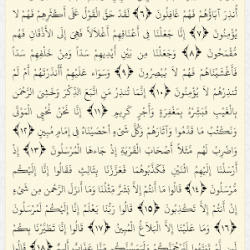 أُنذِرَ آبَاؤُهُمْ فَهُمْ غَافِلُونَ ﴿٦﴾ لَقَدْ حَقَّ الْقَوْلُ عَلَىٰ أَكْثَرِهِمْ فَهُمْ لَا
يُؤْمِنُونَ ﴿٧﴾ إِنَّا جَعَلْنَا فِي أَعْنَاقِهِمْ أَغْلَالًا فَهِيَ إِلَى الْأَذْقَانِ فَهُم
مُّقْمَحُونَ ﴿٨﴾ وَجَعَلْنَا مِن بَيْنِ أَيْدِيهِمْ سَدًّا وَمِنْ خَلْفِهِمْ سَدًّا
فَأَغْشَيْنَاهُمْ فَهُمْ لَا يُبْصِرُونَ ﴿٩﴾ وَسَوَاءٌ عَلَيْهِمْ أَأَنذَرْتَهُمْ أَمْ لَمْ
تُنذِرْهُمْ لَا يُؤْمِنُونَ ﴿١٠﴾ إِنَّمَا تُنذِرُ مَنِ اتَّبَعَ الذِّكْرَ وَخَشِيَ الرَّحْمَٰنَ
بِالْغَيْبِ فَبَشِّرْهُ بِمَغْفِرَةٍ وَأَجْرٍ كَرِيمٍ ﴿١١﴾ إِنَّا نَحْنُ نُحْيِي الْمَوْتَىٰ
وَنَكْتُبُ مَا قَدَّمُوا وَآثَارَهُمْ وَكُلَّ شَيْءٍ أَحْصَيْنَاهُ فِي إِمَامٍ مُّبِينٍ ﴿١٢﴾
وَاضْرِبْ لَهُم مَّثَلًا أَصْحَابَ الْقَرْيَةِ إِذْ جَاءَهَا الْمُرْسَلُونَ ﴿١٣﴾ إِذْ
أَرْسَلْنَا إِلَيْهِمُ اثْنَيْنِ فَكَذَّبُوهُمَا فَعَزَّزْنَا بِثَالِثٍ فَقَالُوا إِنَّا إِلَيْكُم
مُّرْسَلُونَ ﴿١٤﴾ قَالُوا مَا أَنتُمْ إِلَّا بَشَرٌ مِّثْلُنَا وَمَا أَنزَلَ الرَّحْمَٰنُ مِن شَيْءٍ
إِنْ أَنتُمْ إِلَّا تَكْذِبُونَ ﴿١٥﴾ قَالُوا رَبُّنَا يَعْلَمُ إِنَّا إِلَيْكُمْ لَمُرْسَلُونَ
﴿١٦﴾ وَمَا عَلَيْنَا إِلَّا الْبَلَاغُ الْمُبِينُ ﴿١٧﴾ قَالُوا إِنَّا تَطَيَّرْنَا بِكُمْ